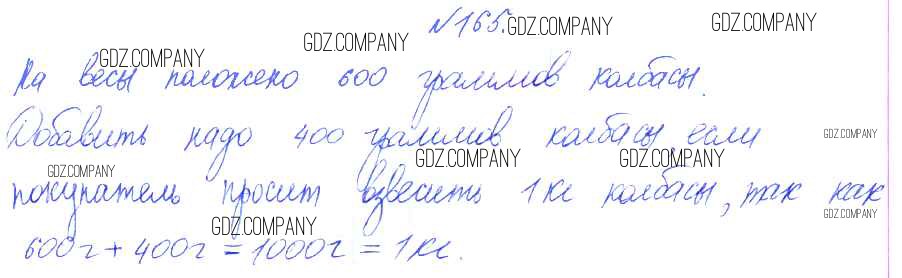 №165.
На весы положено 600 граммов колбасы.
Добавить надо 400 граммов колбасы, если
покупатель просит взвесить 1 кг колбасы, так как
600г + 400г = 1000г = 1 кг.
GDZ.COMPANY
GDZ.COMPANY
GDZ.COMPANY
GDZ.COMPANY
GDZ.COMPANY
GDZ.COMPANY
GDZ.COMPANY
GDZ.COMPANY
GDZ.COMPANY
GDZ.COMPANY